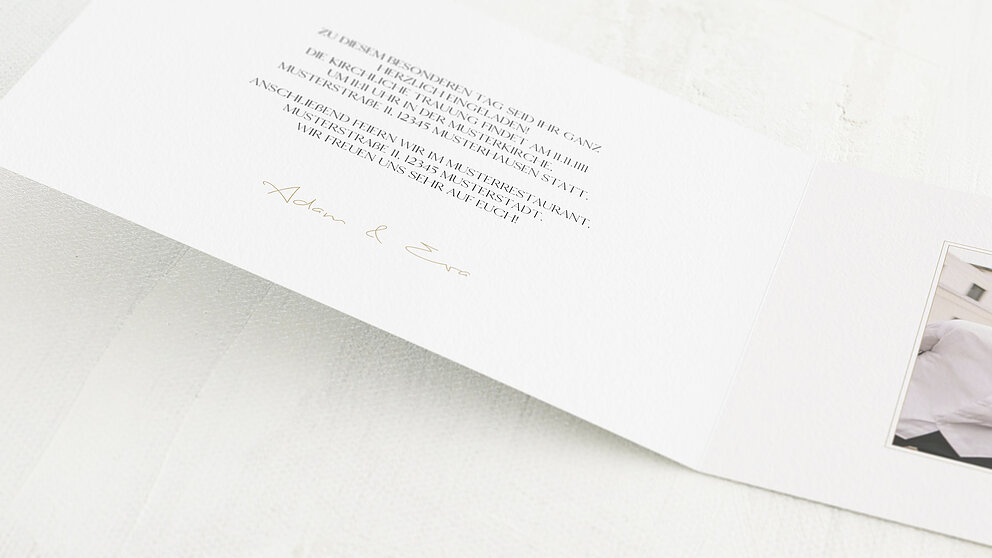 ZU DIESEM BESONDEREN TAG SEID IHR GANZ
HERZLICH EINGELADEN!
DIE KIRCHLICHE TRAUUNG FINDET AM 11.11.1111
UM 11.11 UHR IN DER MUSTERKIRCHE,
MUSTERSTRAßE 11, 12345 MUSTERHAUSEN STATT.
ANSCHLIEßEND FEIERN WIR IM MUSTERRESTAURANT,
MUSTERSTRAßE 11, 12345 MUSTERSTADT.
WIR FREUEN UNS SEHR AUF EUCH!
Adam & Eva